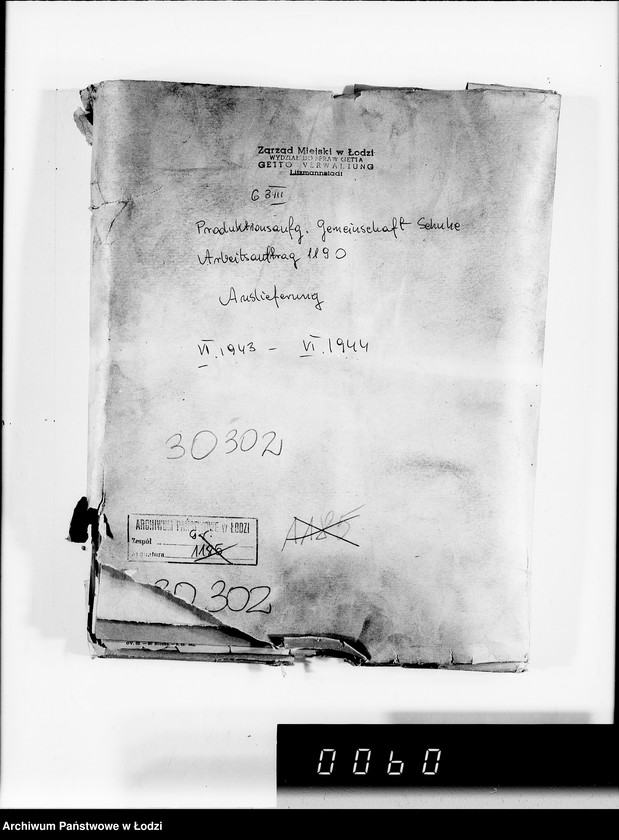 Zarząd Miejski w Łodzi
WYDZIAŁ DO SPRAW GETTA
GETTO VERWALTUNG
Litzmannstadt
G 3 III
Produktionsaufg. Gemeinschaft Schuhe
Arbeitsauftrag 1190
Auslieferung
VI.1943 – VI.1944
30302
ARCHIWUM PAŃSTWOWE w ŁODZI
Zespół
Sygnatura 1186
1185
30302
0060
Archiwum Państwowe w Łodzi